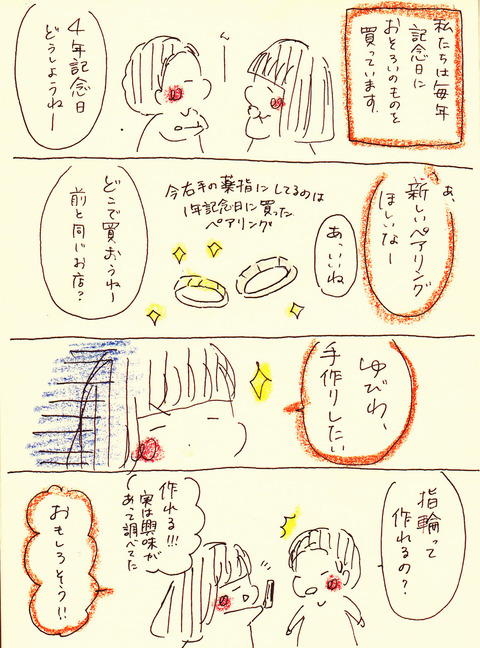 私たちは毎年
記念日に
おそろいのものを
買っています.
4年記念日
どうしようねー
あ、
新しいペアリング
ほしいなー
あっいいね
今右手の薬指にしてるのは
1年記念日に買った
ペアリング
どこで買おうねー
前と同じお店？
ゆびわ、
手作りしたい
指輪って
作れるの？
作れる!!!
実は興味が
あって調べてた
おもしろそう!!